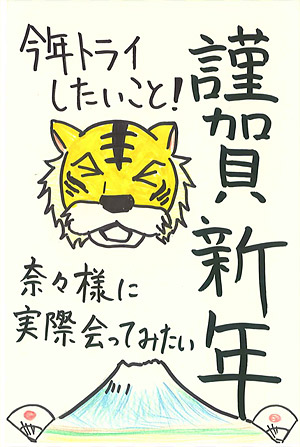 謹賀新年
今年トライ
したいこと!
奈々様に
実際会ってみたい